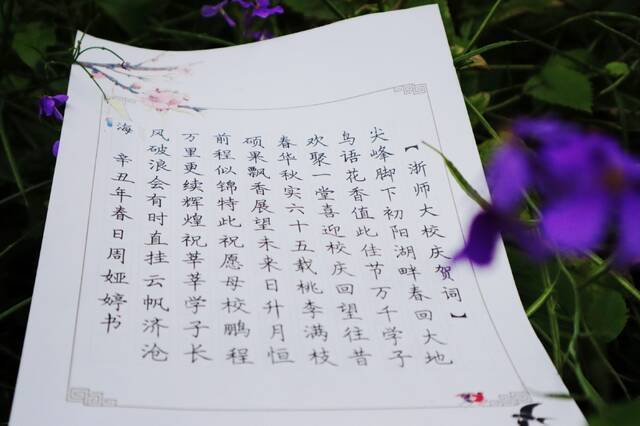 【浙师大校庆贺词】
尖峰脚下初阳湖畔春回大地
鸟语花香值此佳节万千学子
欢聚一堂喜迎校庆回望往昔
春华秋实六十五载桃李满枝
硕果飘香展望未来日升月恒
前程似锦特此祝愿母校鹏程
万里更续辉煌祝莘莘学子长
风破浪会有时直挂云帆济沧
海 辛丑年春日周娅婷书